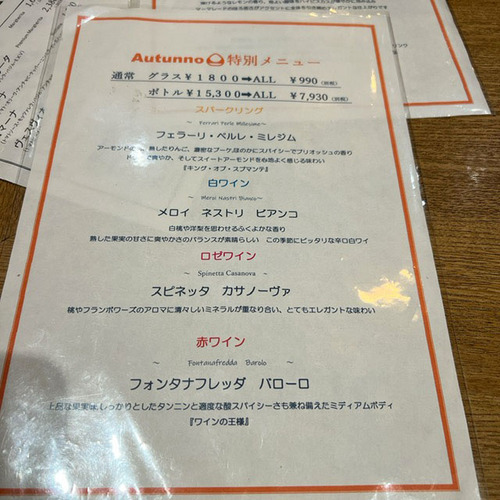 Autunno 特別メニュー
通常 グラス¥1800➡ALL ¥990(税税)
ボトル¥15,300➡ALL ¥7,930(税税)
スパークリング
～ Ferrari Perle Millesimo～
フェラーリ・ペルレ・ミレジム
熟したりんご、濃密なブーケ,ほのかにスパイシーでブリオッシュの香り
爽やか、そしてスイートアーモンドを心地よく感じる味わい
『キング・オブ・スプマンテ』
白ワイン
～ Meroi Nestri Bianco～
メロイ ネストリ ビアンコ
白桃や洋梨を思わせるふくよかな香り
熟した果実の甘さに爽やかさのバランスが素晴らしい この季節にピッタリな辛口白ワイ
ロゼワイン
～ Spinetta Casanova ～
スピネッタ カサノーヴァ
桃やフランボワーズのアロマに清々しいミネラルが重なり合い、とてもエレガントな味わい
赤ワイン
～ Fontanafredda Barolo ～
フォンタナフレッダ バローロ
上品な果実味,しっかりとしたタンニンと適度な酸スパイシーさも兼ね備えたミディアムボディ
『ワインの王様』